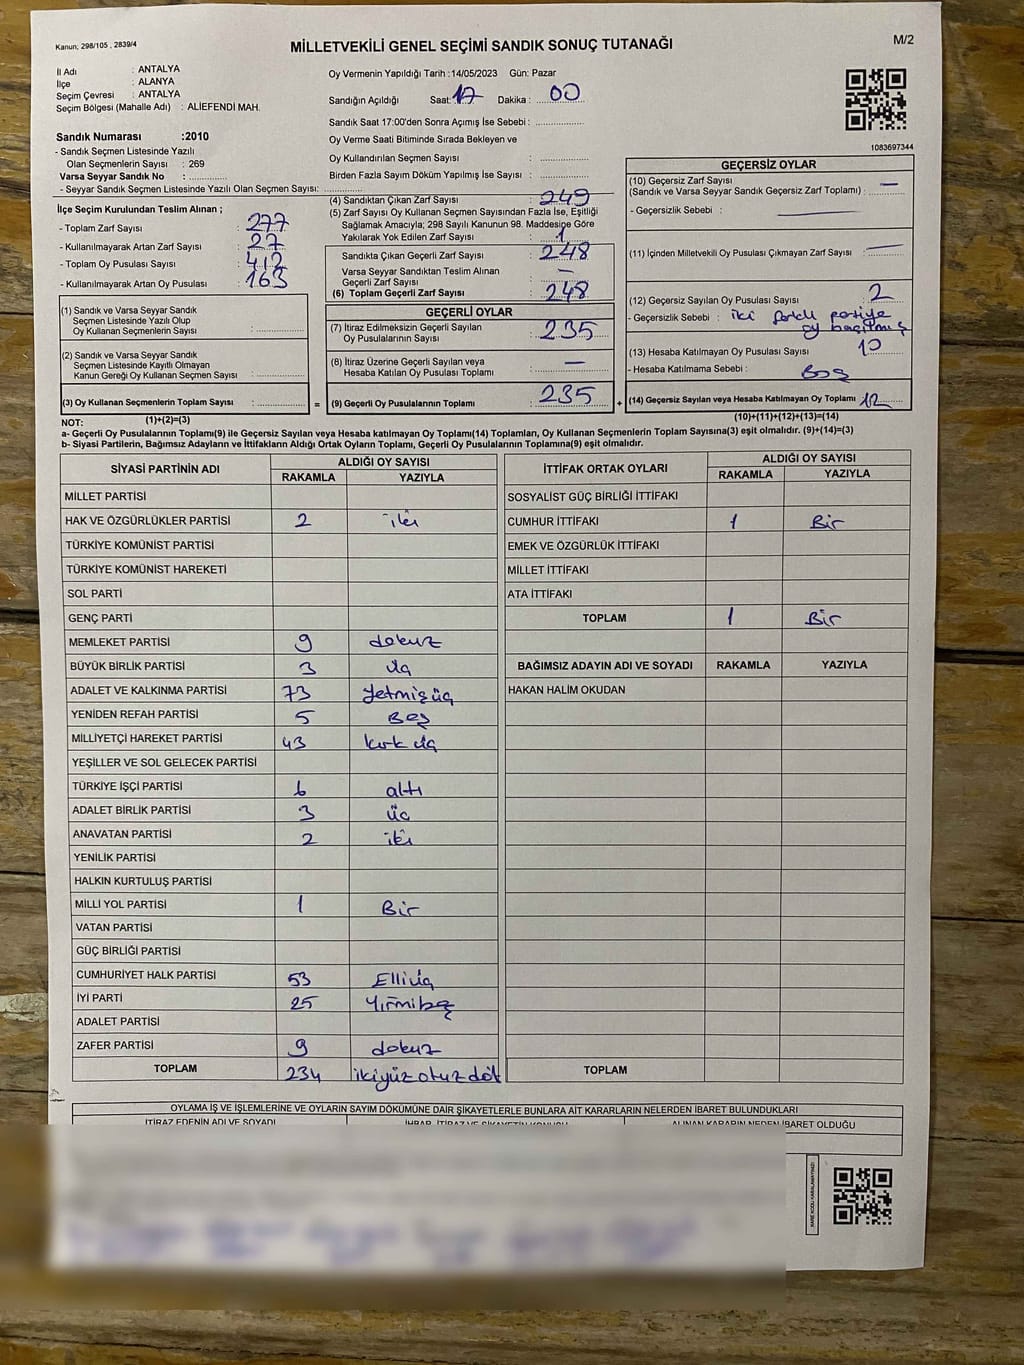 Kanun; 298/105 , 2839/4
MİLLETVEKİLİ GENEL SEÇİMİ SANDIK SONUÇ TUTANAĞI
M/2
İl Adı : ANTALYA
İlçe : ALANYA
Seçim Çevresi : ANTALYA
Seçim Bölgesi (Mahalle Adı) : ALİEFENDİ MAH.
Sandık Numarası :2010
- Sandık Seçmen Listesinde Yazılı
Olan Seçmenlerin Sayısı : 269
Varsa Seyyar Sandık No :
- Seyyar Sandık Seçmen Listesinde Yazılı Olan Seçmen Sayısı:
Oy Vermenin Yapıldığı Tarih :14/05/2023 Gün: Pazar
Sandığın Açıldığı Saat: 17 Dakika : 00
Sandık Saat 17:00'den Sonra Açımış İse Sebebi :
Oy Verme Saati Bitiminde Sırada Bekleyen ve
Oy Kullandırılan Seçmen Sayısı :
Birden Fazla Sayım Döküm Yapılmış İse Sayısı :
1083697344
İlçe Seçim Kurulundan Teslim Alınan ;
- Toplam Zarf Sayısı : 277
- Kullanılmayarak Artan Zarf Sayısı : 27
- Toplam Oy Pusulası Sayısı : 412
- Kullanılmayarak Artan Oy Pusulası : 163
(1) Sandık ve Varsa Seyyar Sandık
Seçmen Listesinde Yazılı Olup
Oy Kullanan Seçmenlerin Sayısı :
(2) Sandık ve Varsa Seyyar Sandık
Seçmen Listesinde Kayıtlı Olmayan
Kanun Gereği Oy Kullanan Seçmen Sayısı :
(3) Oy Kullanan Seçmenlerin Toplam Sayısı : =
(4) Sandıktan Çıkan Zarf Sayısı : 249
(5) Zarf Sayısı Oy Kullanan Seçmen Sayısından Fazla İse, Eşitliği
Sağlamak Amacıyla; 298 Sayılı Kanunun 98. Maddesine Göre
Yakılarak Yok Edilen Zarf Sayısı : 1
Sandıkta Çıkan Geçerli Zarf Sayısı : 248
Varsa Seyyar Sandıktan Teslim Alınan
Geçerli Zarf Sayısı : —
(6) Toplam Geçerli Zarf Sayısı : 248
GEÇERLİ OYLAR
(7) İtiraz Edilmeksizin Geçerli Sayılan
Oy Pusulalarının Sayısı : 235
(8) İtiraz Üzerine Geçerli Sayılan veya
Hesaba Katılan Oy Pusulası Toplamı : —
(9) Geçerli Oy Pusulalarının Toplamı : 235 +
GEÇERSİZ OYLAR
(10) Geçersiz Zarf Sayısı
(Sandık ve Varsa Seyyar Sandık Geçersiz Zarf Toplamı) : —
- Geçersizlik Sebebi : —
(11) İçinden Milletvekili Oy Pusulası Çıkmayan Zarf Sayısı : —
(12) Geçersiz Sayılan Oy Pusulası Sayısı : 2
- Geçersizlik Sebebi : iki farklı partiye
oy basılmış
(13) Hesaba Katılmayan Oy Pusulası Sayısı : 10
- Hesaba Katılmama Sebebi : Boş
(14) Geçersiz Sayılan veya Hesaba Katılmayan Oy Toplamı : 12
NOT: (1)+(2)=(3)
(10)+(11)+(12)+(13)=(14)
a- Geçerli Oy Pusulalarının Toplamı(9) ile Geçersiz Sayılan veya Hesaba katılmayan Oy Toplamı(14) Toplamları, Oy Kullanan Seçmenlerin Toplam Sayısına(3) eşit olmalıdır. (9)+(14)=(3)
b- Siyasi Partilerin, Bağımsız Adayların ve İttifakların Aldığı Ortak Oyların Toplamı, Geçerli Oy Pusulalarının Toplamına(9) eşit olmalıdır.
SİYASİ PARTİNİN ADI ALDIĞI OY SAYISI
RAKAMLA YAZIYLA
MİLLET PARTİSİ
HAK VE ÖZGÜRLÜKLER PARTİSİ 2 iki
TÜRKİYE KOMÜNİST PARTİSİ
TÜRKİYE KOMÜNİST HAREKETİ
SOL PARTİ
GENÇ PARTİ
MEMLEKET PARTİSİ 9 dokuz
BÜYÜK BİRLİK PARTİSİ 3 üç
ADALET VE KALKINMA PARTİSİ 73 Yetmişüç
YENİDEN REFAH PARTİSİ 5 Beş
MİLLİYETÇİ HAREKET PARTİSİ 43 kırk üç
YEŞİLLER VE SOL GELECEK PARTİSİ
TÜRKİYE İŞÇİ PARTİSİ 6 altı
ADALET BİRLİK PARTİSİ 3 üç
ANAVATAN PARTİSİ 2 iki
YENİLİK PARTİSİ
HALKIN KURTULUŞ PARTİSİ
MİLLİ YOL PARTİSİ 1 Bir
VATAN PARTİSİ
GÜÇ BİRLİĞİ PARTİSİ
CUMHURİYET HALK PARTİSİ 53 Elliüç
İYİ PARTİ 25 Yirmibeş
ADALET PARTİSİ
ZAFER PARTİSİ 9 dokuz
TOPLAM 234 ikiyüz otuz döt
İTTİFAK ORTAK OYLARI ALDIĞI OY SAYISI
RAKAMLA YAZIYLA
SOSYALİST GÜÇ BİRLİĞİ İTTİFAKI
CUMHUR İTTİFAKI 1 Bir
EMEK VE ÖZGÜRLÜK İTTİFAKI
MİLLET İTTİFAKI
ATA İTTİFAKI
TOPLAM 1 Bir
BAĞIMSIZ ADAYIN ADI VE SOYADI RAKAMLA YAZIYLA
HAKAN HALİM OKUDAN
TOPLAM
OYLAMA İŞ VE İŞLEMLERİNE VE OYLARIN SAYIM DÖKÜMÜNE DAİR ŞİKAYETLERLE BUNLARA AİT KARARLARIN NELERDEN İBARET BULUNDUKLARI
İTİRAZ EDENİN ADI VE SOYADI İHBAR, İTİRAZ VE ŞİKAYETİN KONUSU ALINAN KARARIN NEDEN İBARET OLDUĞU
KARE KODU KARALAMAYINIZ!